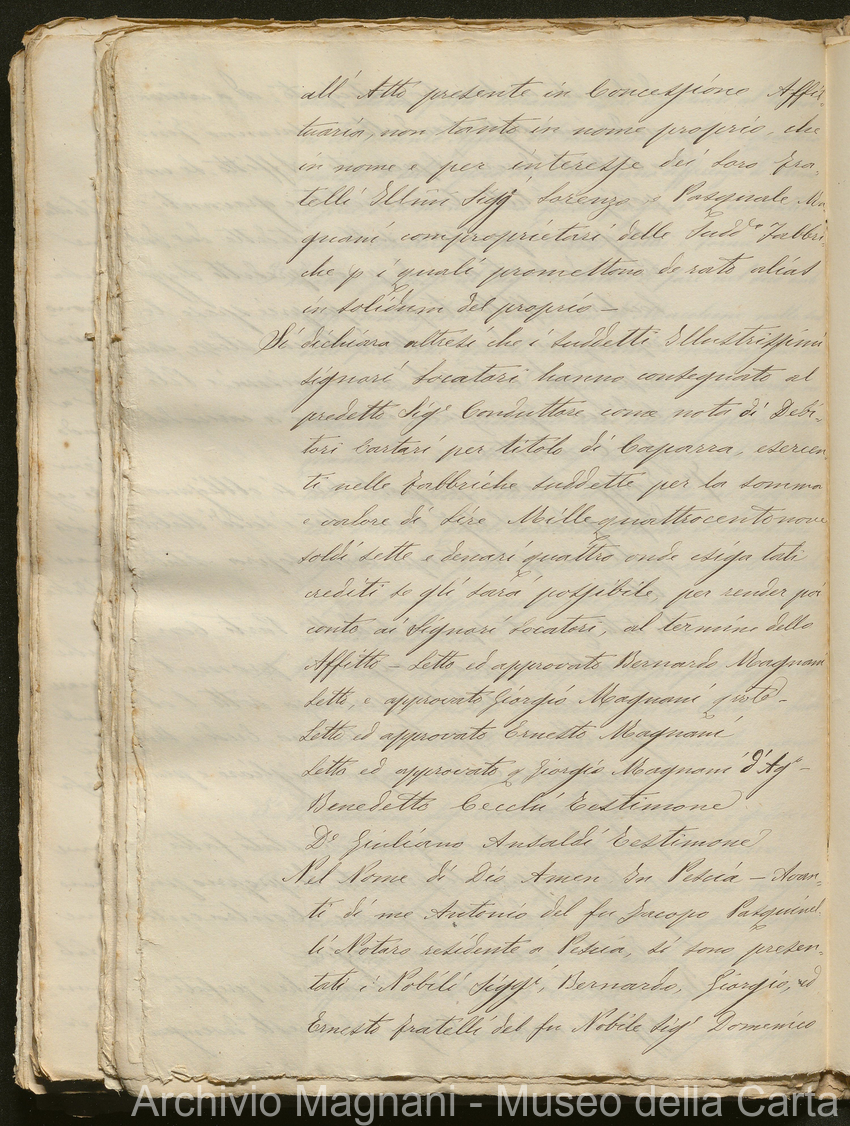 all' Atto presente in Concessione Affit-
tuaria, non tanto in nome proprio, che
in nome e per interesse dei Loro Fra-
telli Illmi Sigg.i Lorenzo e Pasquale Ma
gnani comproprietari delle Sudd.e Fabbri-
che p i quali promettono de rato alias
in solidum del proprio —
Si dichiara altresì che i suddetti Illustrissimi
signori Locatari hanno consegnato al
predetto Sig.r Conduttore una nota di Debi-
tori Cartari per titolo di Caparra, esercen
ti nelle Fabbriche suddette per la somma
e valore di Lire Mille quattrocentonove
soldi sette e denari quattro onde esiga tali
crediti se gli sarà possibile, per render poi
conto ai Signori Locatori, al termine dello
Affitto — Letto ed approvato Bernardo Magnani
Letto, e approvato Giorgio Magnani
Letto ed approvato Ernesto Magnani
Letto ed approvato Giorgio Magnani d'Ag.o —
Benedetto Cecchi Testimone
D.e Giuliano Ansaldi Testimone
Nel Nome di Dio Amen In Pescia — Avan-
ti di me Antonio del fu Jacopo Pasquinel
li Notaro residente a Pescia, si sono presen-
tati i Nobili Sigg.i, Bernardo, Giorgio, ed
Ernesto fratelli del fu Nobile Sig.r Domenico
Archivio Magnani - Museo della Carta